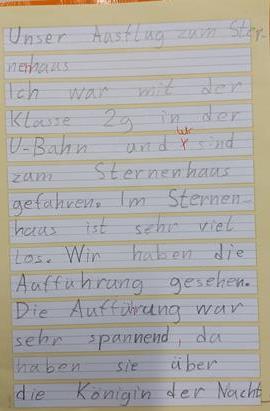 Unser Ausflug zum Ster-
nenhaus
Ich war mit der
Klasse 2g in der
U-Bahn und wir sind
zum Sternenhaus
gefahren. Im Sternen-
haus ist sehr viel
los. Wir haben die
Aufführung gesehen.
Die Aufführung war
sehr spannend, da
haben sie über
die Königin der Nacht